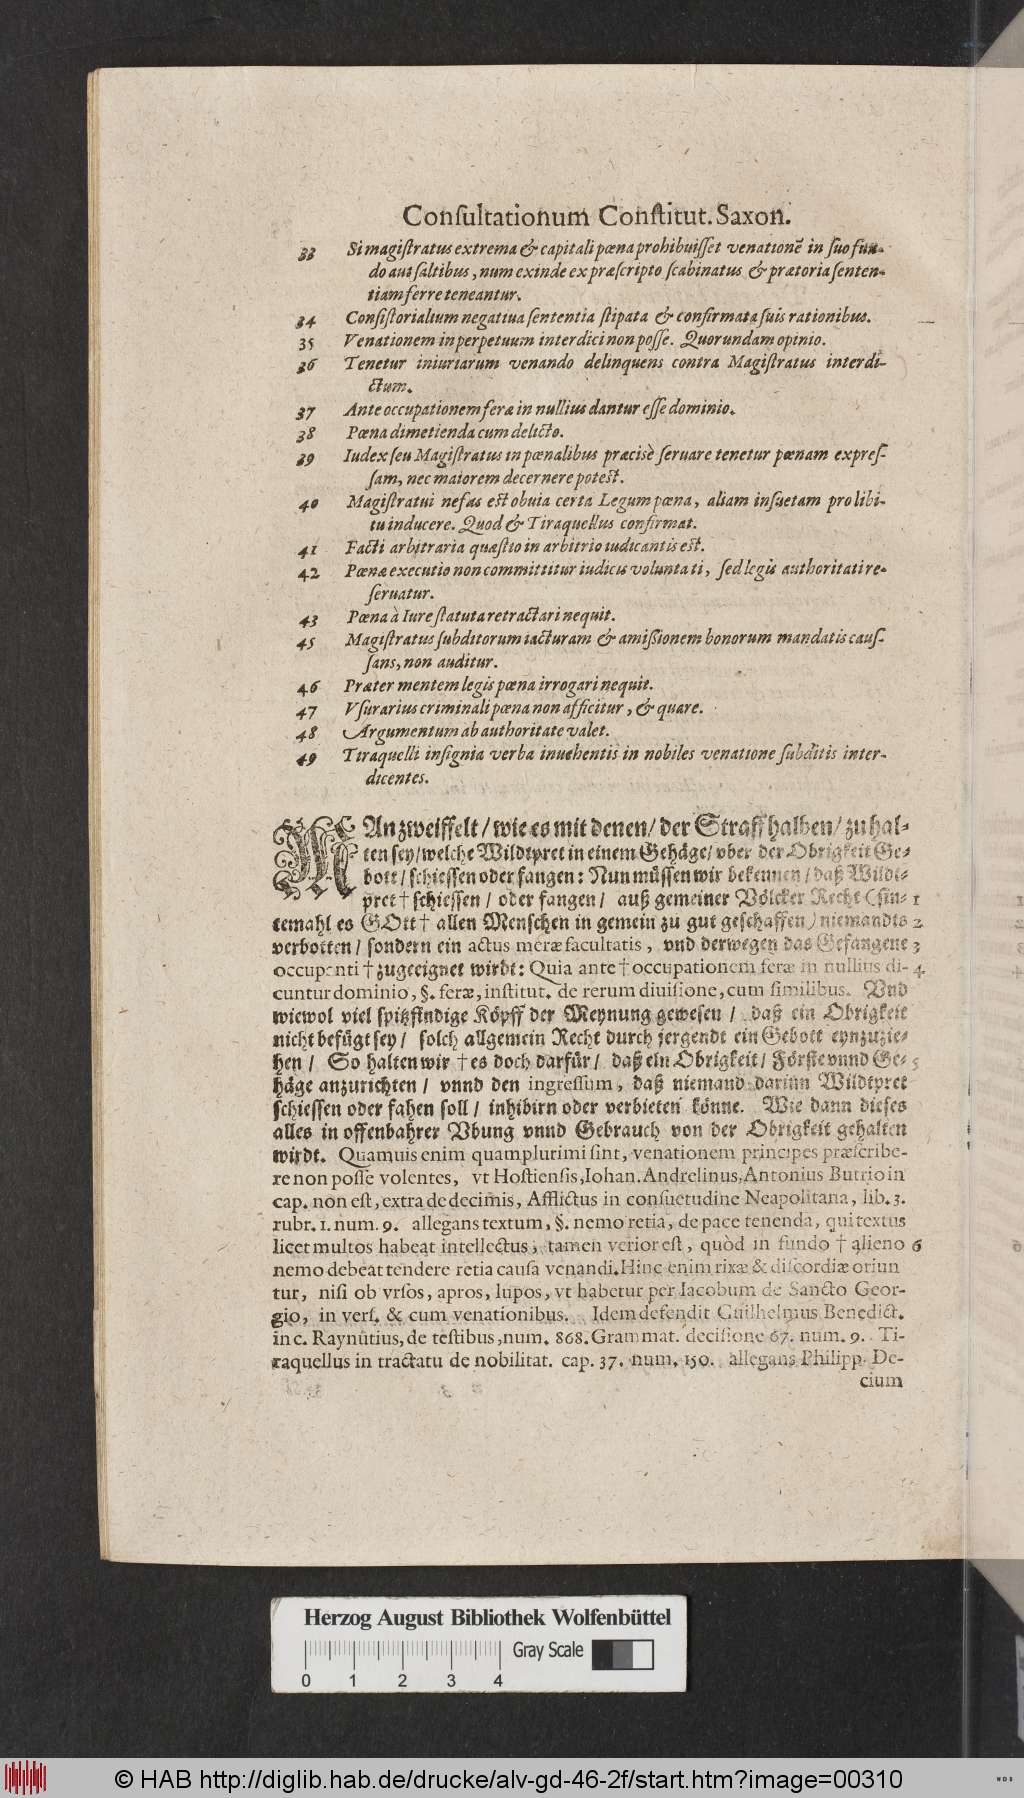 Conſultationum Conſtitut. Saxon.
33 Si magiſtratus extrema & capitali pœna prohibuiſſet venationẽ in ſuo fun-
do aut ſaltibus, num exinde ex præſcripto ſcabinatus & prætoria ſenten-
tiam ferre teneantur.
34 Conſiſtorialium negatiua ſententia ſtipata & confirmata ſuis rationibus.
35 Venationem in perpetuum interdici non poſſe. Quorundam opinio.
36 Tenetur iniuriarum venando delinquens contra Magiſtratus interdi-
ctum.
37 Ante occupationem feræ in nullius dantur eſſe dominio.
38 Pœna dimetienda cum delicto.
39 Iudex ſeu Magiſtratus in pœnalibus præcisè ſeruare tenetur pœnam expreſ-
ſam, nec maiorem decernere poteſt.
40 Magiſtratui nefas eſt obuia certa Legum pœna, aliam inſuetam pro libi-
tu inducere. Quod & Tiraquellus confirmat.
41 Facti arbitraria quæſtio in arbitrio iudicantis eſt.
42 Pœnæ executio non committitur iudicis voluntati, ſed legis authoritati re-
ſeruatur.
43 Pœna à Iure ſtatuta retractari nequit.
45 Magiſtratus ſubditorum iacturam & amiſſionem bonorum mandatis cauſ-
ſans, non auditur.
46 Præter mentem legis pœna irrogari nequit.
47 Vſurarius criminali pœna non afficitur, & quare.
48 Argumentum ab authoritate valet.
49 Tiraquelli inſignia verba inuehentis in nobiles venatione ſubditis inter-
dicentes.
MAn zweiffelt / wie es mit denen / der Straff halben / zu hal-
ten ſey / welche Wildtpret in einem Gehäge / vber der Obrigkeit Ge-
bott / ſchieſſen oder fangen: Nun müſſen wir bekennen / daß Wildt-
pret † ſchieſſen / oder fangen / auß gemeiner Völcker Recht (ſin- 1
temahl es GOtt † allen Menſchen in gemein zu gut geſchaffen) niemandts 2
verbotten / ſondern ein actus meræ facultatis, vnd derwegen das Gefangene 3
occupanti † zugeeignet wirdt: Quia ante † occupationem feræ in nullius di- 4
cuntur dominio, §. feræ, inſtitut. de rerum diuiſione, cum ſimilibus. Vnd
wiewol viel ſpitzfindige Köpff der Meynung geweſen / daß ein Obrigkeit
nicht befügt ſey / ſolch allgemein Recht durch jergendt ein Gebott eynzuzie-
hen / So halten wir † es doch darfür / daß ein Obrigkeit / Förſte vnnd Ge- 5
häge anzurichten / vnnd den ingreſſum, daß niemand darinn Wildtpret
ſchieſſen oder fahen ſoll / inhibirn oder verbieten könne. Wie dann dieſes
alles in offenbahrer Vbung vnnd Gebrauch von der Obrigkeit gehalten
wirdt. Quamuis enim quamplurimi ſint, venationem principes præſcribe-
re non poſſe volentes, vt Hoſtienſis, Iohan. Andrelinus, Antonius Butrio in
cap. non eſt, extra de decimis, Afflictus in conſuetudine Neapolitana, lib. 3.
rubr. 1. num. 9. allegans textum, §. nemo retia, de pace tenenda, qui textus
licet multos habeat intellectus, tamen verior eſt, quòd in fundo † alieno 6
nemo debeat tendere retia cauſa venandi. Hinc enim rixæ & diſcordiæ oriun
tur, niſi ob vrſos, apros, lupos, vt habetur per Iacobum de Sancto Geor-
gio, in verſ. & cum venationibus. Idem defendit Guilhelmus Benedict.
in c. Raynũtius, de teſtibus, num. 868. Grammat. deciſione 67. num. 9. Ti-
raquellus in tractatu de nobilitat. cap. 37. num. 150. allegans Philipp. De-
cium
Herzog August Bibliothek Wolfenbüttel
Gray Scale
0 1 2 3 4
© HAB http://diglib.hab.de/drucke/alv-gd-46-2f/start.htm?image=00310